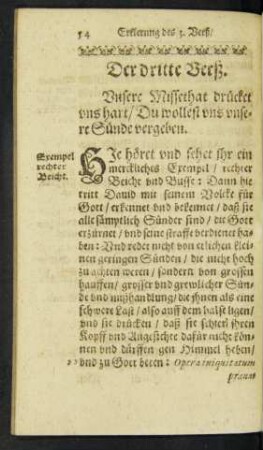 54 Erklerung des 3. Verß/
Der dritte Verß.
Vnsere Missethat drücket
vns hart/ Du wollest vns vnse-
re Sünde vergeben.
Exempel
rechter
Beicht.
HIe höret vnd sehet jhr ein
mercklıches Exempel/ rechter
Beicht vnd Busse: Dann hie
tritt Dauid mit seinem Volcke für
Gott/ erkennet vnd bekennet/ daß sie
alle sämptlich Sünder sind/ die Gott
erzürnet/ vnd seine straffe verdienet ha-
ben: Vnd redet nicht von etlichen klei-
nen geringen Sünden/ die nicht hoch
zu achten weren/ sondern von grossen
hauffen/ grosser vnd grewlicher Sün-
de vnd mißhandlung/ die jhnen als eine
schwere Last/ also auff dem halse ligen/
vnd sie drücken/ daß sie schier jhren
Kopff vnd Angesichte dafür nicht kön-
nen vnd dürffen gen Himmel heben/
vnd zu Gott beten: Opera iniquitatum